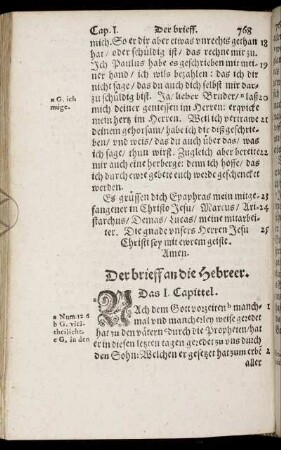 Cap. I. Der brieff. 768
mich. So er dir aber etwas vnrechts gethan 18
hat/ oder schüldig ist/ das rechne mir zu.
Ich Paulus habe es geschrieben mit mei- 19
ner hand/ ich wils bezahlen: das ich dir
nicht sage/ das du auch dich selbst mir dar-
zu schüldig bist. Ja/ lieber Bruder/ ᵃlaß 20
a G. ich
müge.
mich deiner geniessen im Herren: erquicke
mein hertz im Herren. Weil ich vertrawe 21
deinem gehorsam/ habe ich dir diß geschrie-
ben/ vnd weis/ das du auch über das/ was
ich sage/ thun wirst. Zugleich aber bereite 22
mir auch eine herberge: denn ich hoffe/ das
ich durch ewre gebete euch werde geschencket
werden.
Es grüssen dich Epaphras mein mitge- 23
fangener in Christo Jesu/ Marcus/ Ari- 24
starchus/ Demas/ Lucas/ meine mitarbei-
ter. Die gnade vnsers Herren Jesu 25
Christi sey mit ewrem geist.
Amen.
Der brieff an die Hebreer.
Das I. Capittel.
NAch dem Gott vorzeiten ᵇ manch-
mal vnd mancherley weise geredet
a Num. 12 6
b G. viel-
theilicht.
c G. in den
hat zu den vätern ᶜ durch die Propheten/ hat
er in diesen letzten tagen geredet zu vns durch
den Sohn: Welchen er gesetzet hat zum erbē 2
aller